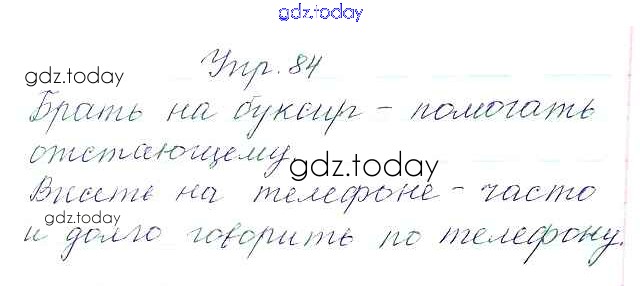 gdz.today
Упр. 84
gdz.today
Брать на буксир – помогать
отстающему
gdz.today
Висеть на телефоне – часто
gdz.today
и долго говорить по телефону.